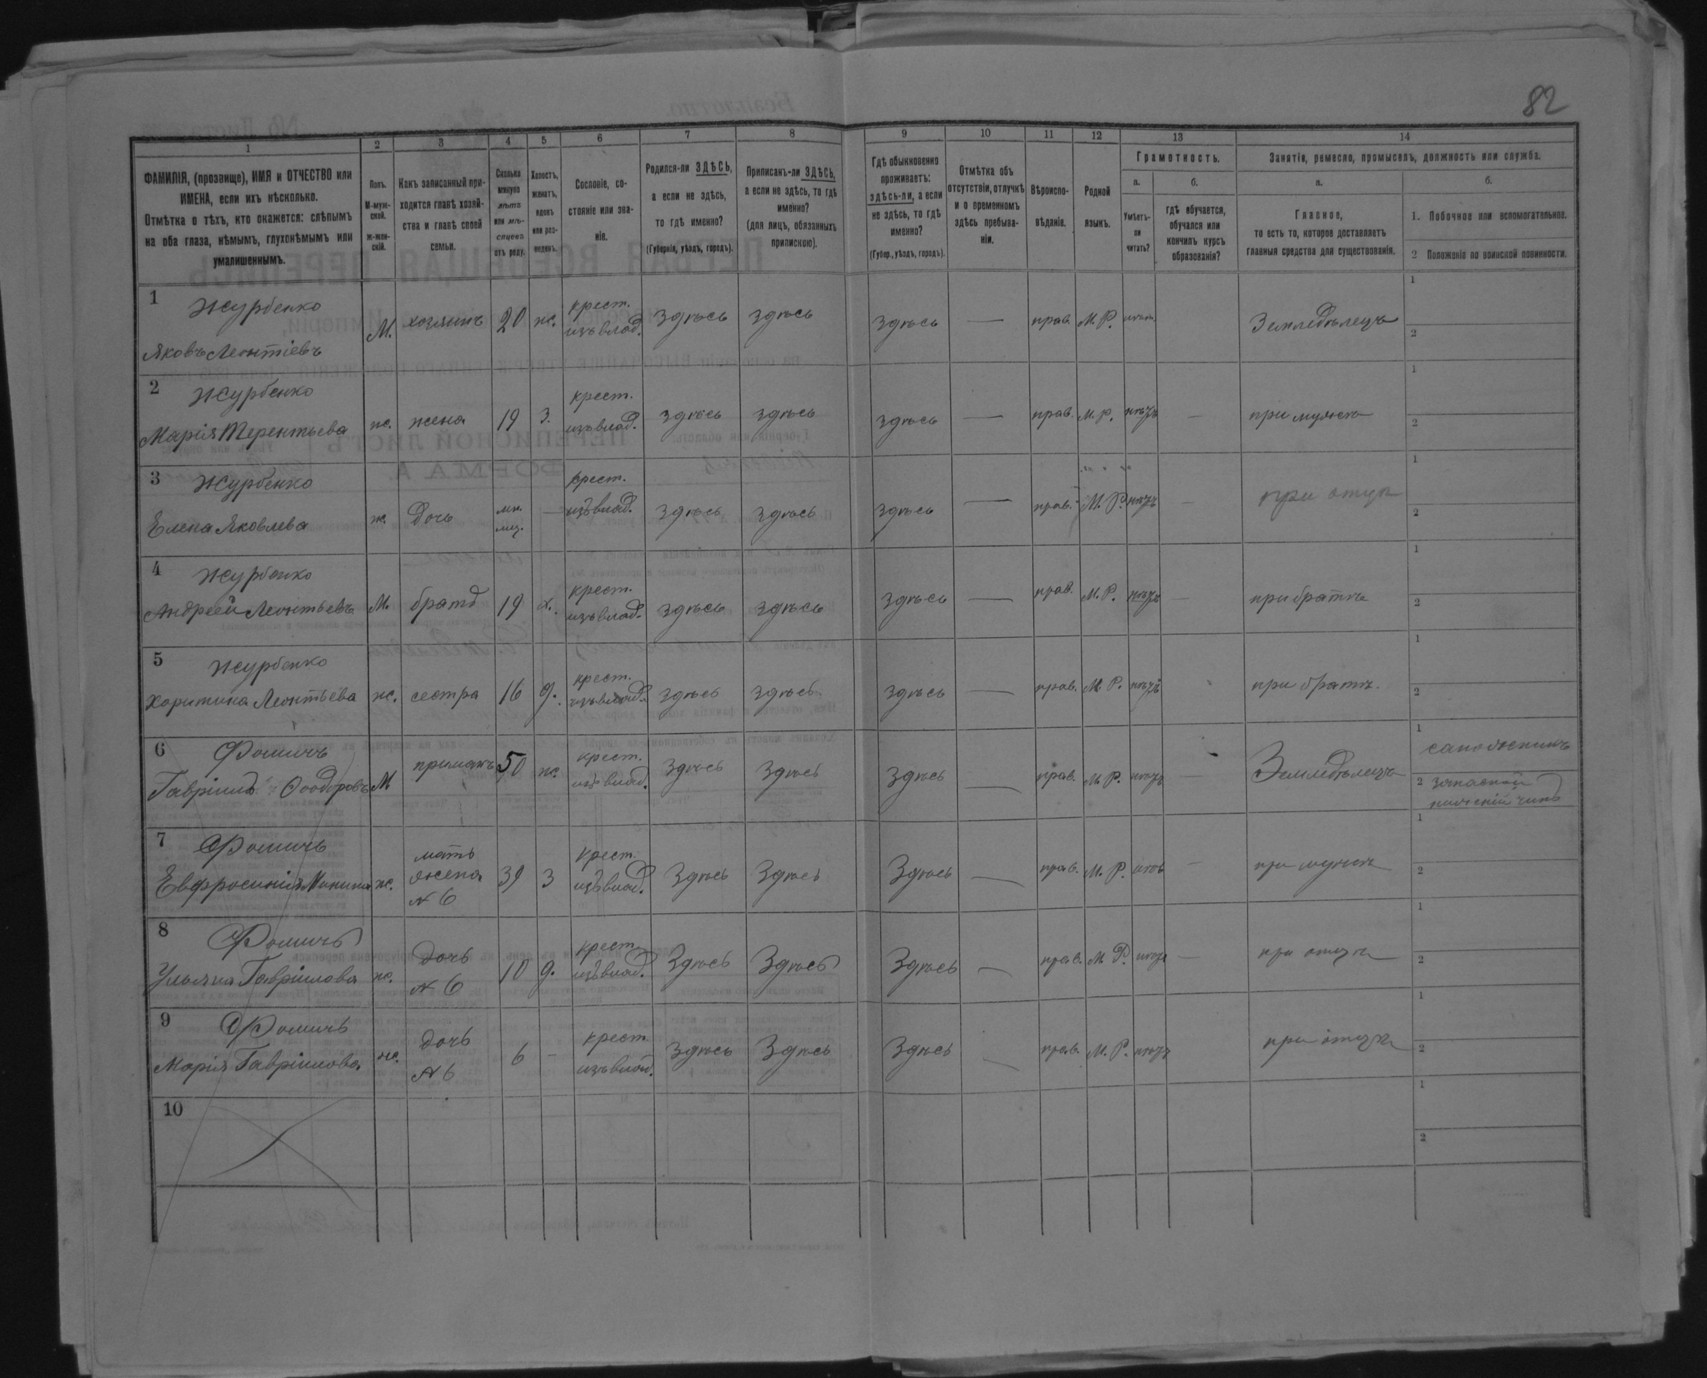 82
1 2 3 4 5 6 7 8 9 10 11 12 13 14
ФАМИЛІЯ, (прозвище), ИМЯ и ОТЧЕСТВО или ИМЕНА, если ихъ нѣсколько.
Отмѣтка о тѣхъ, кто окажется: слѣпымъ на оба глаза, нѣмымъ, глухонѣмымъ или умалишеннымъ.
Полъ. М-муж-ской. ж-жен-скій.
Какъ записанный при-ходится главѣ хозяй-ства и главѣ своей семьи.
Сколько минуло лѣтъ или мѣ-сяцевъ отъ роду.
Холостъ, женатъ, вдовъ или раз-веденъ.
Сословіе, со-стояніе или зва-ніе.
Родился-ли ЗДѢСЬ, а если не здѣсь, то гдѣ именно?
(Губернія, уѣздъ, городъ).
Приписанъ-ли ЗДѢСЬ, а если не здѣсь, то гдѣ именно?
(для лицъ, обязанныхъ припискою).
Гдѣ обыкновенно проживаетъ: здѣсь-ли, а если не здѣсь, то гдѣ именно?
(Губер., уѣздъ, городъ).
Отмѣтка объ отсутствіи, отлучкѣ и о временномъ здѣсь пребыва-ніи.
Вѣроиспо-вѣданіе.
Родной языкъ.
Грамотность.
а. Умѣетъ-ли читать?
б. гдѣ обучается, обучался или кончилъ курсъ образованія?
Занятіе, ремесло, промыселъ, должность или служба.
а. Главное,
то есть то, которое доставляетъ главныя средства для существованія.
б.
1. Побочное или вспомогательное.
2 Положеніе по воинской повинности.
1 Журбенко крест.
Яковъ Леонтіевъ М. хозяинъ 20 ж. изъ влад. здѣсь здѣсь здѣсь — прав. М.Р. Земледѣлецъ
2 Журбенко крест.
Марія Терентьева ж. жена 19 З. изъ влад. здѣсь здѣсь здѣсь — прав. М.Р. нѣтъ — при мужѣ
3 Журбенко крест.
Елена Яковлева ж. дочь — изъ влад. здѣсь здѣсь здѣсь — прав. М.Р. нѣтъ — при отцѣ
4 Журбенко крест.
Андрей Леонтьевъ М. братъ 19 х. изъ влад. здѣсь здѣсь здѣсь — прав. М.Р. нѣтъ — при братѣ
5 Журбенко крест.
Харитина Леонтьева ж. сестра 16 д. изъ влад. здѣсь здѣсь здѣсь — прав. М.Р. нѣтъ при братѣ.
6 Фомичъ примакъ крест. 1 сапожникъ
Гавріилъ Ѳеодоровъ М 50 ж. изъ влад. здѣсь здѣсь здѣсь — прав. М.Р. нѣтъ — Земледѣлецъ 2 запасной
нижній чинъ
7 Фомичъ мать крест.
Евфросинія ж. жена 39 З изъ влад. Здѣсь Здѣсь Здѣсь — прав. М.Р. нѣтъ — при мужѣ
№ 6
8 Фомичъ дочь крест.
Ульяна Гавріилова ж. № 6 10 д. изъ влад. Здѣсь Здѣсь Здѣсь — прав. М.Р. нѣтъ — при отцѣ
9 Фомичъ дочь крест.
Марія Гавріилова ж. № 6 6 - изъ влад. Здѣсь Здѣсь Здѣсь — прав. М.Р. нѣтъ при отцѣ
10